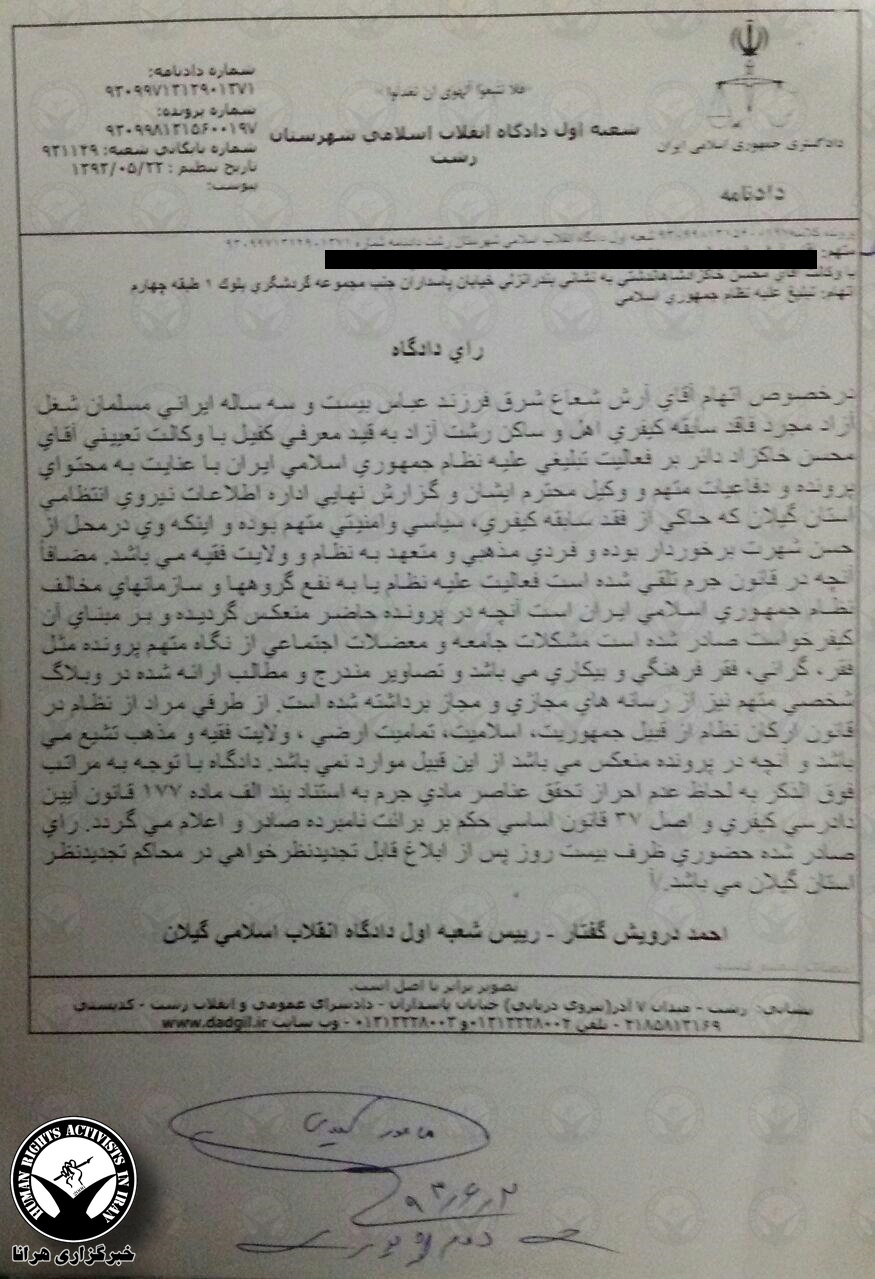 دادگستری جمهوری اسلامی ایران
دادنامه
«فلا تتبعوا الهوی ان تعدلوا»
شعبه اول دادگاه انقلاب اسلامی شهرستان
رشت
شماره دادنامه:
۹۳۰۹۹۷۱۳۱۲۹۰۱۳۷۱
شماره پرونده:
۹۳۰۹۹۸۱۳۱۵۶۰۰۱۹۷
شماره بایگانی شعبه: ۹۳۱۱۲۹
تاریخ تنظیم : ۱۳۹۳/۰۵/۲۲
پیوست:
پرونده کلاسه شعبه اول دادگاه انقلاب اسلامي شهرستان رشت دادنامه شماره ۹۳۰۹۹۷۱۳۱۲۹۰۱۳۷۱
متهم:
با وکالت آقاي محسن به نشاني بندرانزلي خيابان پاسداران جنب مجموعه گردشگري بلوك ۱ طبقه چهارم
اتهام: تبليغ عليه نظام جمهوري اسلامي
راي دادگاه
درخصوص اتهام آقاي آرش شعاع شرق فرزند عباس بيست و سه ساله ايراني مسلمان شغل
آزاد مجرد فاقد سابقه كيفري اهل و ساكن رشت آزاد به قيد معرفي كفيل با وكالت تعييني آقاي
محسن خاكزاد دائر بر فعاليت تبليغي عليه نظام جمهوري اسلامي ايران با عنايت به محتواي
پرونده و دفاعيات متهم و وكيل محترم ايشان و گزارش نهايي اداره اطلاعات نيروي انتظامي
استان گيلان كه حاكي از فقد سابقه كيفري، سياسي وامنيتي متهم بوده و اينكه وي درمحل از
حسن شهرت برخوردار بوده و فردي مذهبي و متعهد به نظام و ولايت فقيه مي باشد. مضافاً
آنچه در قانون جرم تلقي شده است فعاليت عليه نظام يا به نفع گروهها و سازمانهاي مخالف
نظام جمهوري اسلامي ايران است آنچه در پرونده حاضر منعكس گرديده و بر مبناي آن
كيفرخواست صادر شده است مشكلات جامعه و معضلات اجتماعي از نگاه متهم پرونده مثل
فقر، گراني، فقر فرهنگي و بيكاري مي باشد و تصاوير مندرج و مطالب ارائه شده در وبلاگ
شخصي متهم نيز از رسانه هاي مجازي و مجاز برداشته شده است. از طرفي مراد از نظام در
قانون اركان نظام از قبيل جمهوريت، اسلاميت، تماميت ارضي ، ولايت فقيه و مذهب تشيع مي
باشد و آنچه در پرونده منعكس مي باشد از اين قبيل موارد نمي باشد. دادگاه با توجه به مراتب
فوق الذكر به لحاظ عدم احراز تحقق عناصر مادي جرم به استناد بند الف ماده ۱۷۷ قانون آيين
دادرسي كيفري و اصل ۳۷ قانون اساسي حكم بر برائت نامبرده صادر و اعلام مي گردد. راي
صادر شده حضوري ظرف بيست روز پس از ابلاغ قابل تجديدنظرخواهي در محاكم تجديدنظر
استان گيلان مي باشد./
احمد درويش گفتار - رييس شعبه اول دادگاه انقلاب اسلامي گيلان
تصویر برابر با اصل است.
نشانی: رشت - میدان ۷ آذر(نیروی دریایی) خیابان پاسداران - دادسرای عمومی و انقلاب رشت - کدپستی
۴۱۸۵۸۱۳۱۶۹ - تلفن ۰۱۳۱۳۲۲۸۰۰۲و ۰۱۳۱۳۲۲۸۰۰۳ - وب سایت www.dadgil.ir
۹۳،۶،۲
HUMAN RIGHTS ACTIVISTS IN IRAN
خبرگزاری هرانا